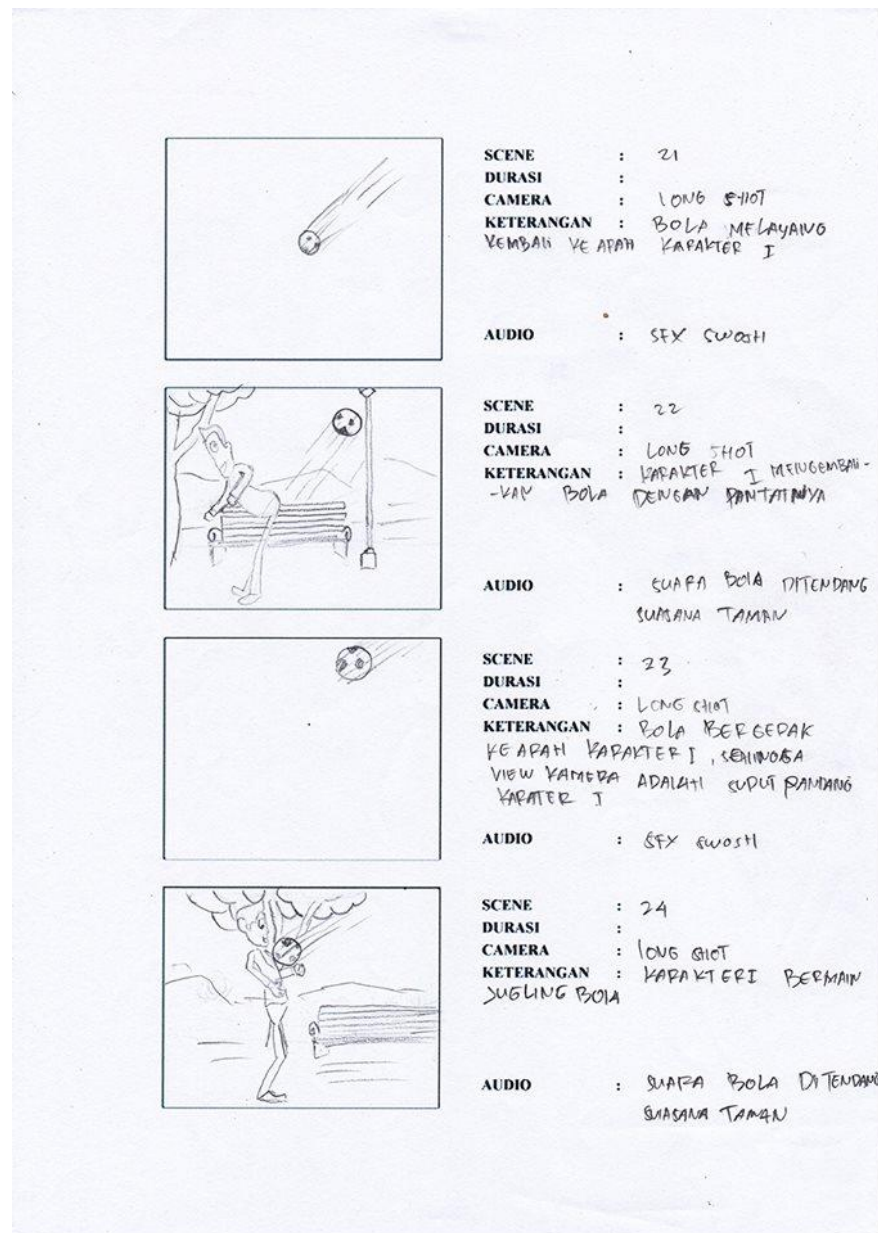 SCENE : 21
DURASI :
CAMERA : LONG SHOT
KETERANGAN : BOLA MELAYANG
KEMBALI KE ARAH KARAKTER I
AUDIO : SFX SWOSH
SCENE : 22
DURASI :
CAMERA : LONG SHOT
KETERANGAN : KARAKTER I MENGEMBALI-
-KAN BOLA DENGAN PANTATNYA
AUDIO : SUARA BOLA DITENDANG
SUASANA TAMAN
SCENE : 23
DURASI :
CAMERA : LONG SHOT
KETERANGAN : BOLA BERGERAK
KE ARAH KARAKTER I, SEHINGGA
VIEW KAMERA ADALAH SUDUT PANDANG
KARATER I
AUDIO : SFX SWOSH
SCENE : 24
DURASI :
CAMERA : LONG SHOT
KETERANGAN : KARAKTER I BERMAIN
JUGLING BOLA
AUDIO : SUARA BOLA DITENDANG
SUASANA TAMAN